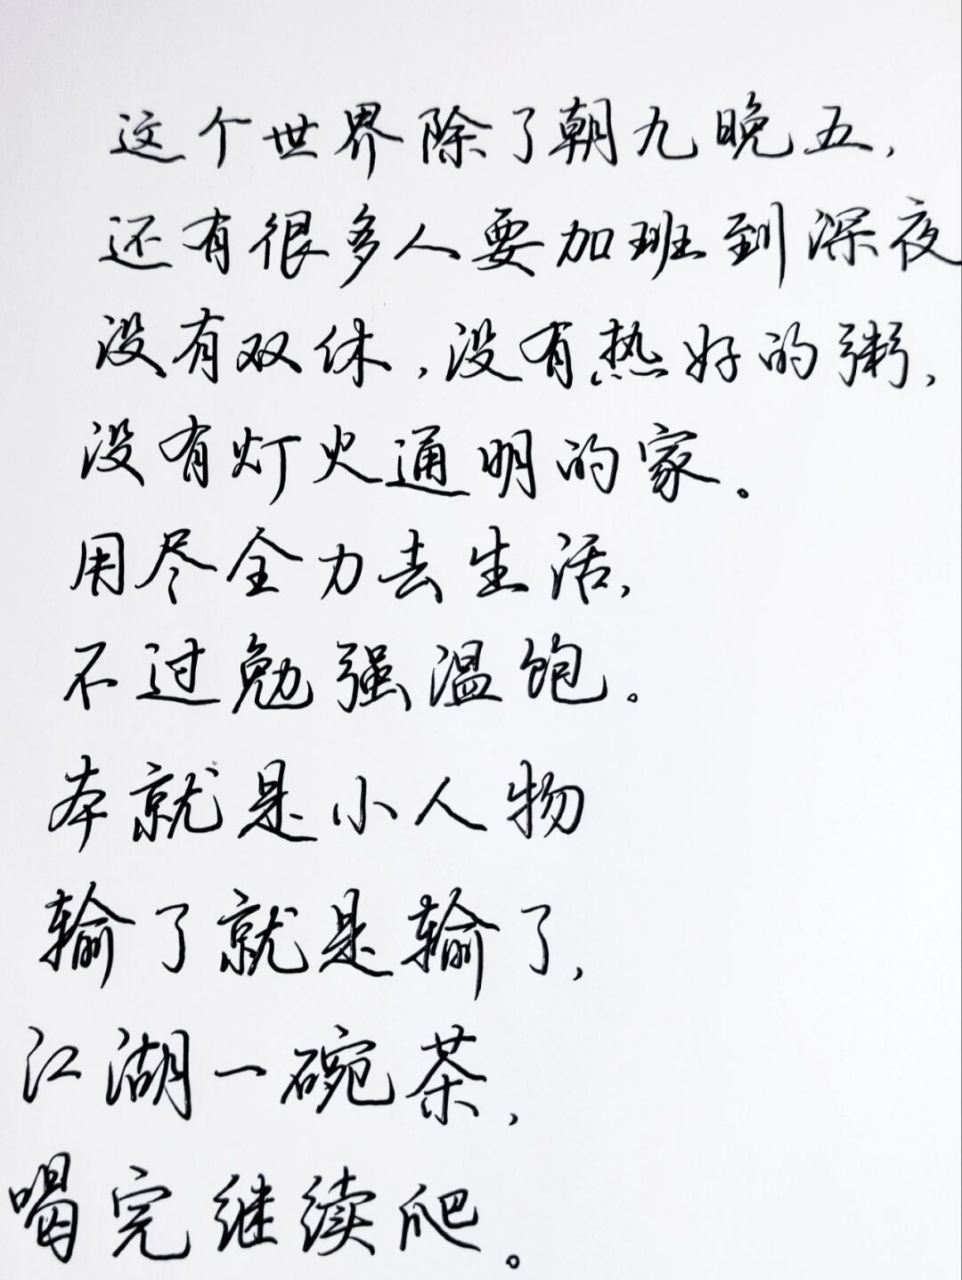 这个世界除了朝九晚五,
还有很多人要加班到深夜
没有双休,没有热好的粥,
没有灯火通明的家。
用尽全力去生活,
不过勉强温饱。
本就是小人物
输了就是输了,
江湖一碗茶,
喝完继续爬。